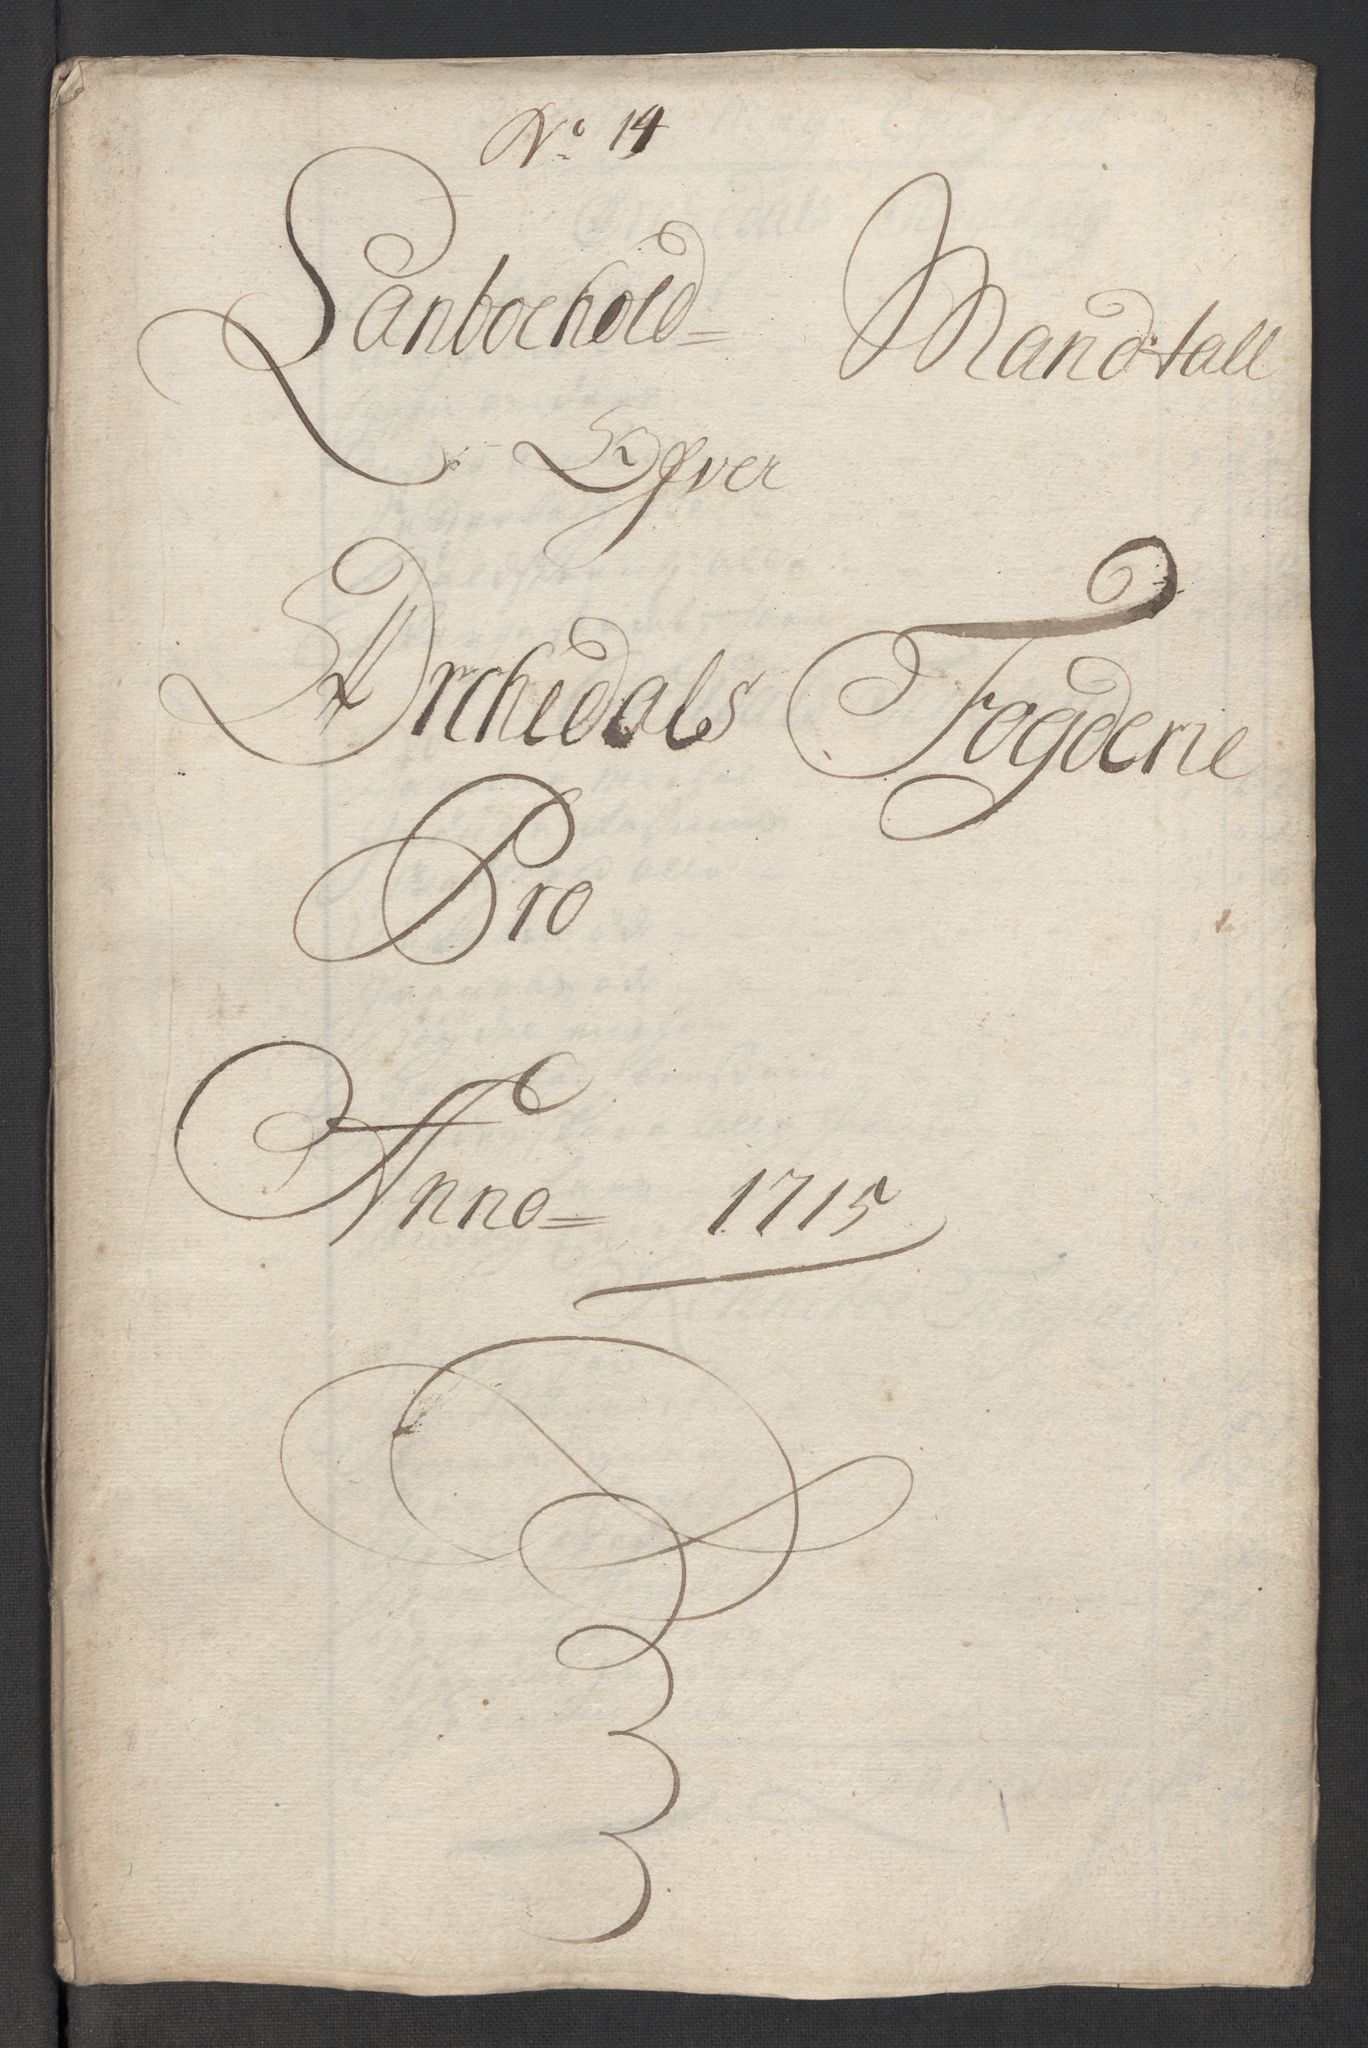 No. 14
Lanboehold= Mandtall
Ofver
Orchedals Fogderie
Pro
Anno= 1715